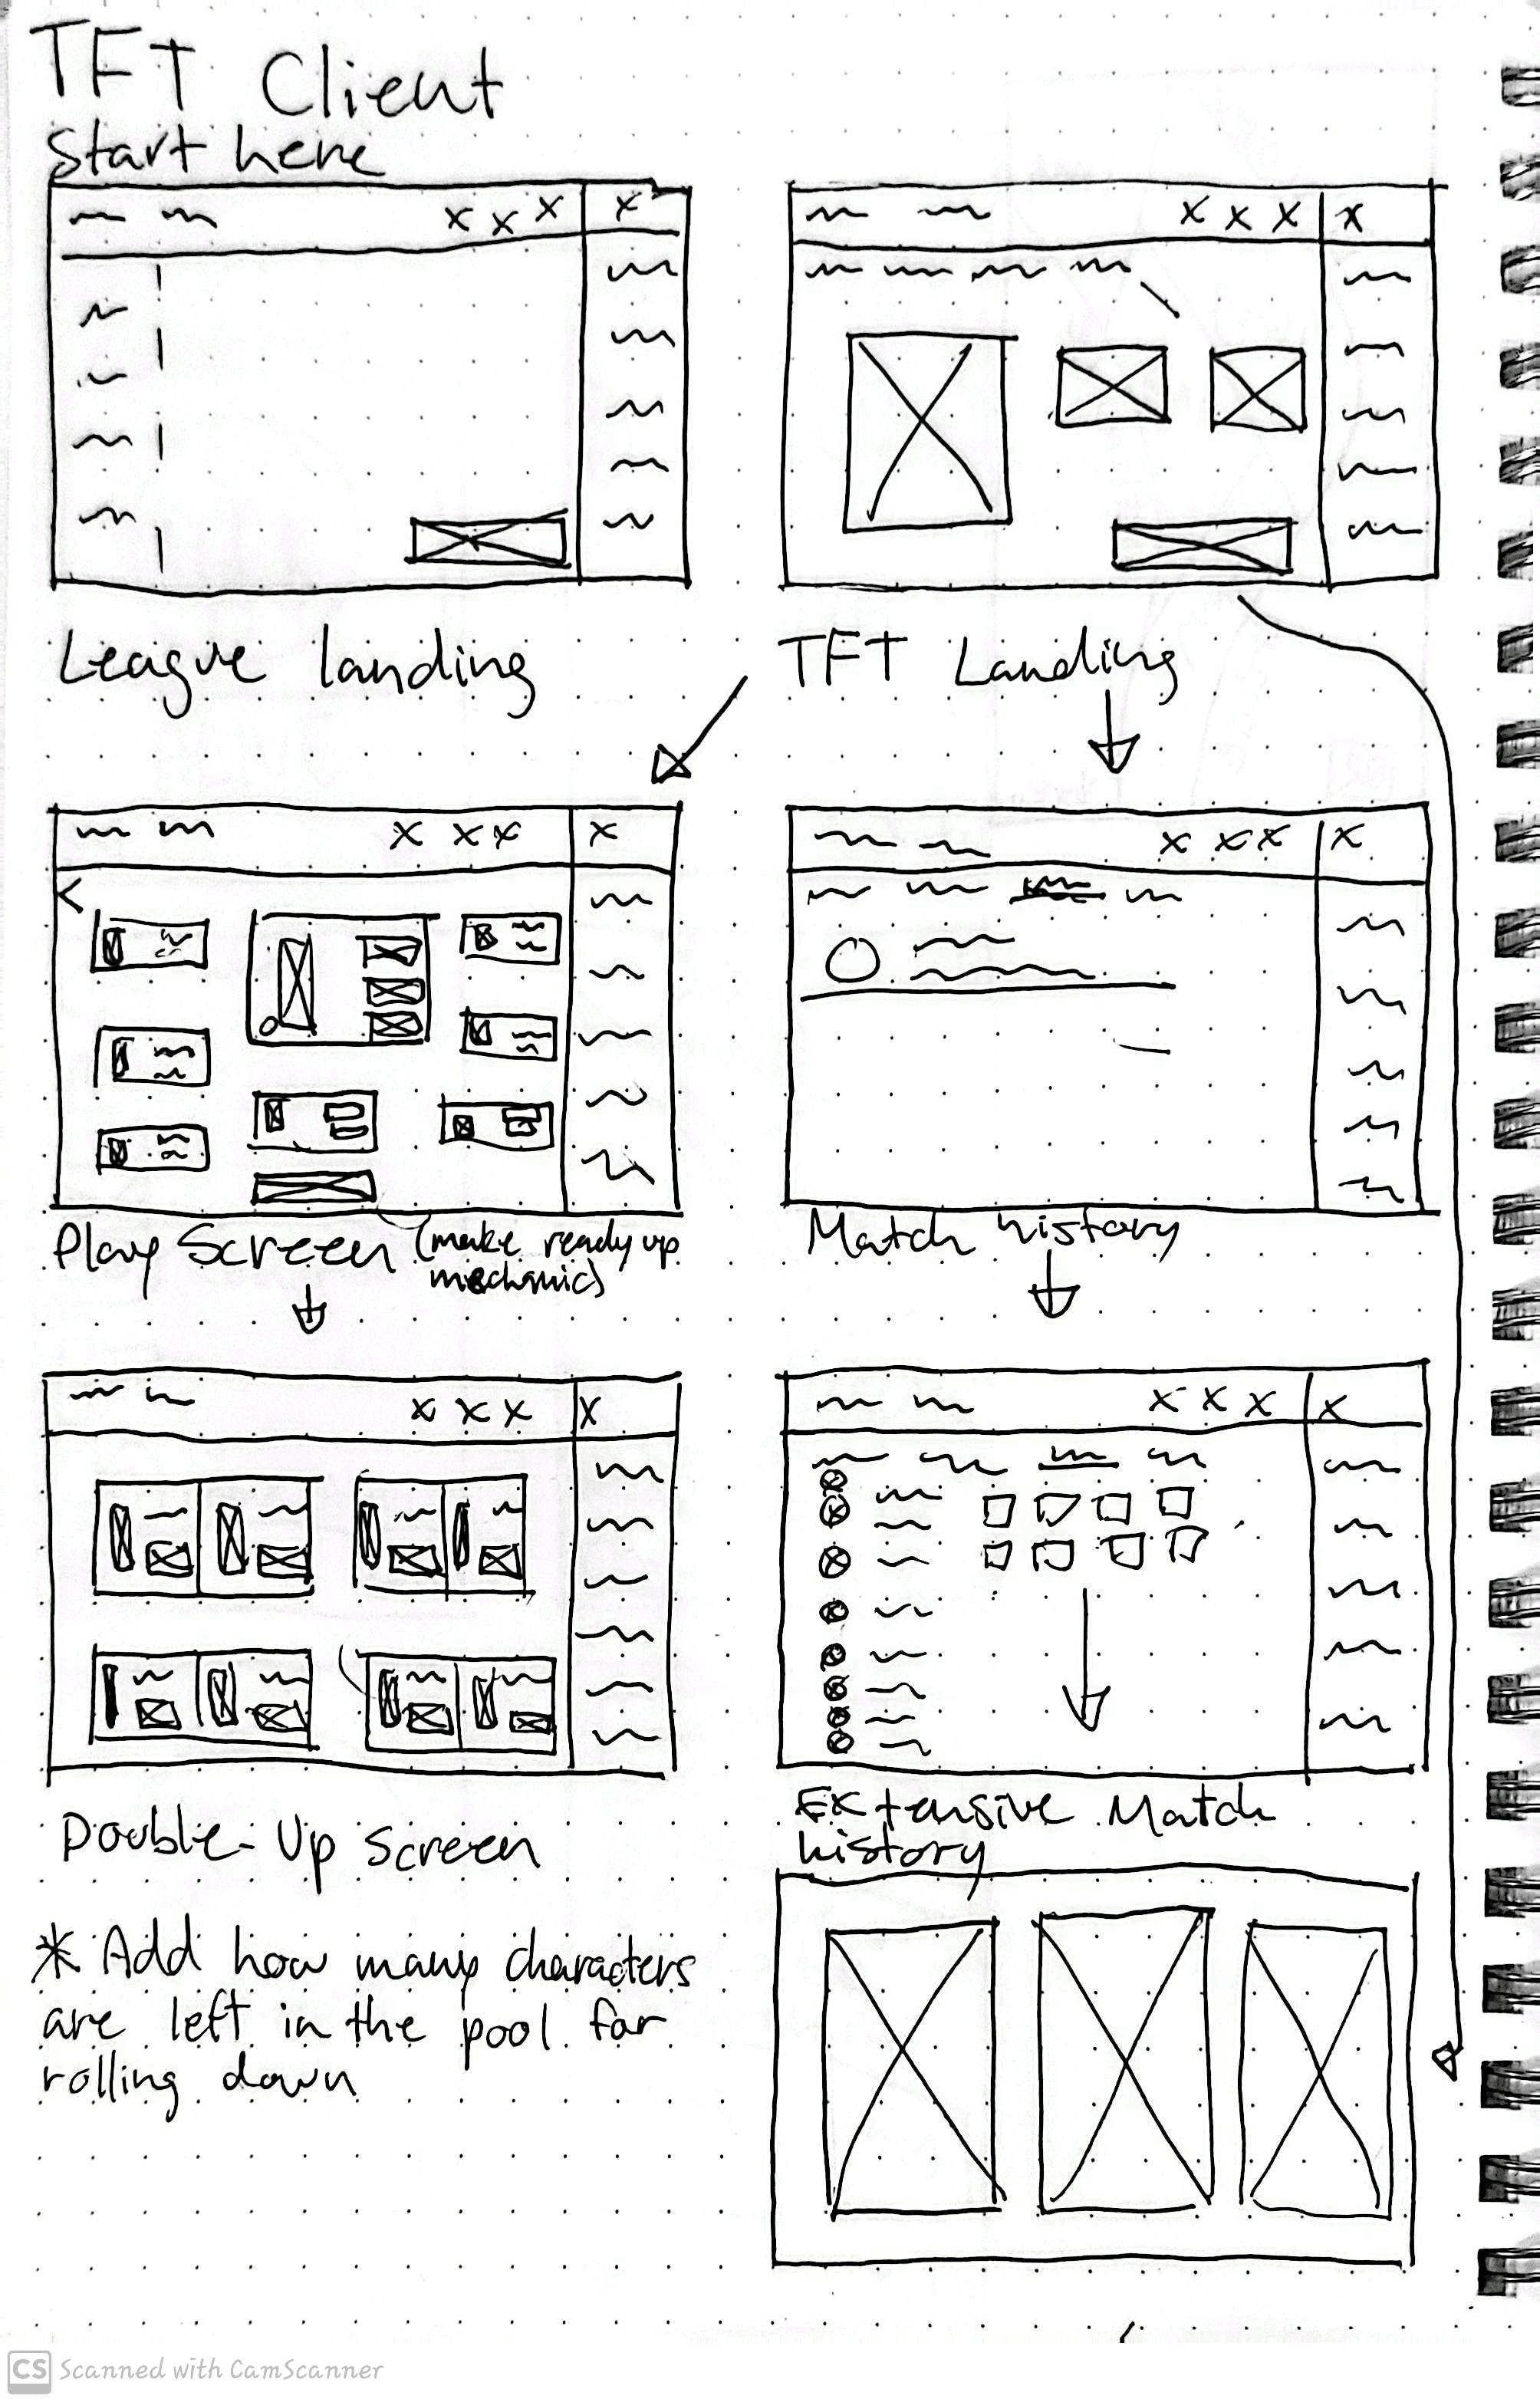 TFT Client
Start here
League landing
TFT Landing
Play Screen (make ready up
mechanic)
Match history
Double-Up Screen
Extensive Match
history
* Add how many characters
are left in the pool for
rolling down
CS Scanned with CamScanner